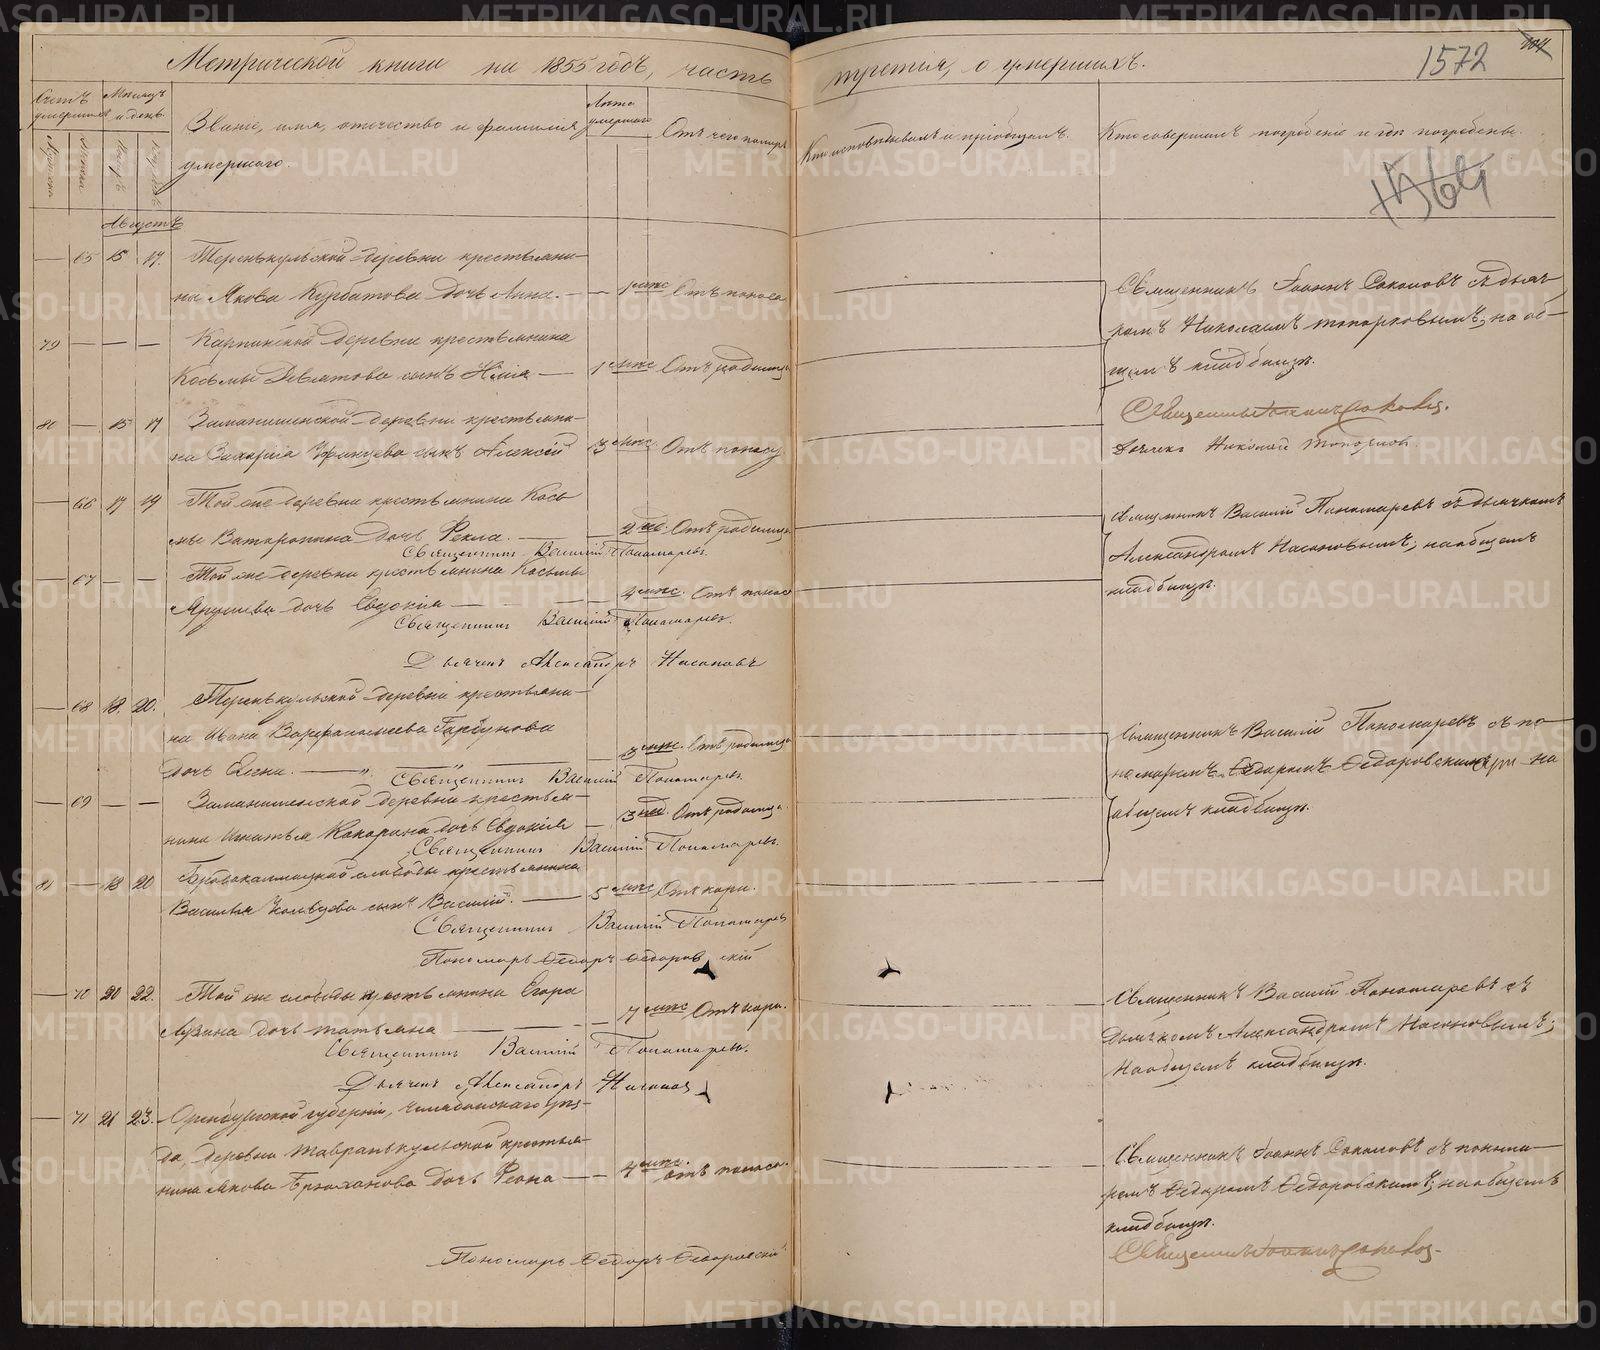 Метрической книги на 1855 годъ, часть третия, о умершихъ.
1572
104
Счетъ умершихъ
Месяцъ и день
Званіе, имя, отечество и фамилия умершаго.
Лета умершаго
Отъ чего померъ
Кто исповѣдывалъ и пріобщалъ.
Кто совершалъ погребеніе и где погребены.
Августъ
65 15 17. Теренькульской деревни крестьяни-
на Якова Курбатова дочь Анна. — 1 мѣс Отъ поноса
79 — — — Карпинской деревни крестьянина
Косьмы Девятова сынъ Илія — 1 мѣс Отъ родимца
80 — 15 17 Заманишенской деревни крестьяни-
на Захарія сынъ Алексей 3 мѣс. Отъ поносу
Священникъ Іоаннъ Соколовъ съ дьяч-
комъ Николаемъ Топорковымъ; на об-
щемъ кладбищѣ.
Священникъ Іоаннъ Соколов.
Дьячекъ Николай Топорков.
— 66 17 19 Той же деревни крестьянина Кось-
мы дочь Фекла. — 2 нед. Отъ родимца
Священникъ Василій Пономаревъ.
— 67 — — Той же деревни крестьянина Косьмы
Ярушева дочь Евдокія — 4 мѣс. Отъ поноса
Священникъ Василій Пономаревъ.
Дьячекъ Александръ Насоновъ
Священникъ Василій Пономаревъ съ дьячкомъ
Александромъ Насоновымъ; на общемъ
кладбищѣ.
— 68 18. 20. Теренькульской деревни крестьяни-
на Ивана Варфоломеева Горбунова
дочь Елена. — 3 мѣс. Отъ родимца
Священникъ Василій Пономаревъ
— 69 — — Заманишенской деревни крестья-
нина Игнатья Кокарина дочь Евдокія 3 нед. Отъ родимца.
Священникъ Василій Пономаревъ.
81 — 18 20 Бродокалмацкой слободы крестьянина
Василья сынъ Василій. — 5 мѣс Отъ кори.
Священникъ Василій Пономаревъ
Пономарь Ѳедоръ Ѳедоровскій
Священникъ Василій Пономаревъ съ по-
номаремъ Ѳедоромъ Ѳедоровскимъ на
общемъ кладбищѣ.
— 70 20 22. Той же слободы крестьянина Егора
Лузина дочь Татьяна — 7 мѣс Отъ кори.
Священникъ Василій Пономаревъ.
Дьячекъ Александръ Насонов
Священникъ Василій Пономаревъ съ
дьячкомъ Александромъ Насоновымъ;
на общемъ кладбищѣ.
— 71 21 23. Оренбургской губерніи, Челябинскаго уѣз-
да, деревни Тавранькульской крестья-
нина Якова Брюханова дочь Феона — 4 мѣс. Отъ поноса.
Пономарь Ѳедоръ Ѳедоровскій
Священникъ Іоаннъ Соколовъ съ понома-
ремъ Ѳедоромъ Ѳедоровскимъ; на общемъ
кладбищѣ.
Священникъ Іоаннъ Соколов.
METRIKI.GASO-URAL.RU